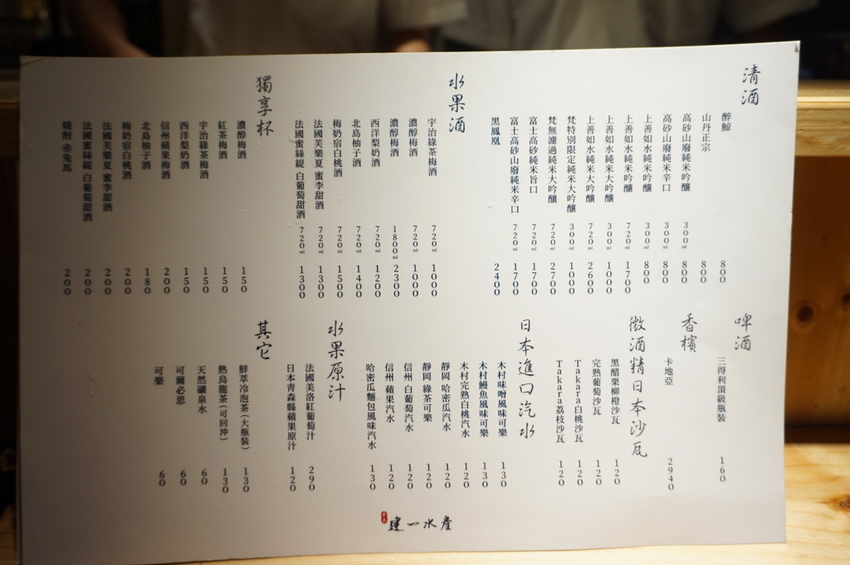 清酒
醉鯨 800
山丹正宗 800
高砂山廢純米吟釀 300ml 800
高砂山廢純米辛口 300ml 800
上善如水純米吟釀 300ml 800
上善如水純米吟釀 720ml 1700
上善如水純米大吟釀 300ml 1000
上善如水純米大吟釀 720ml 2600
梵特別限定純米大吟釀 300ml 1000
梵無濾過純米大吟釀 720ml 2700
富士高砂純米旨口 720ml 1700
富士高砂山廢純米辛口 720ml 1700
黑鳳凰 2400
水果酒
宇治綠茶梅酒 720ml 1000
濃醇梅酒 720ml 1000
濃醇梅酒 1800ml 2300
西洋梨奶酒 720ml 1200
北島柚子酒 720ml 1400
梅奶宿白桃酒 720ml 1500
法國美樂夏 蜜李甜酒 720ml 1300
法國蜜絲緹 白葡萄甜酒 720ml 1300
獨享杯
濃醇梅酒 150
紅茶梅酒 150
宇治綠茶梅酒 150
西洋梨奶酒 150
信州蘋果梅酒 200
北島柚子酒 180
梅奶宿白桃酒 200
法國美樂夏 蜜李甜酒 200
法國蜜絲緹 白葡萄甜酒 200
燒酎 赤兔馬 200
啤酒
三得利頂級瓶裝 160
香檳
卡地亞 2940
微酒精日本沙瓦
黑醋栗柳橙沙瓦 120
完熟葡萄沙瓦 120
Takara白桃沙瓦 120
Takara荔枝沙瓦 120
日本進口汽水
木村味噌風味可樂 130
木村鰻魚風味可樂 130
木村完熟白桃汽水 120
靜岡 哈密瓜汽水 120
靜岡 綠茶可樂 120
信州 白葡萄汽水 120
信州 蘋果汽水 120
哈密瓜麵包風味汽水 130
水果原汁
法國美洛紅葡萄汁 290
日本青森縣蘋果原汁 120
其它
鮮萃冷泡茶(大瓶裝) 130
熱烏龍茶(可回沖) 130
天然礦泉水 60
可爾必思 60
可樂 60
建一水產